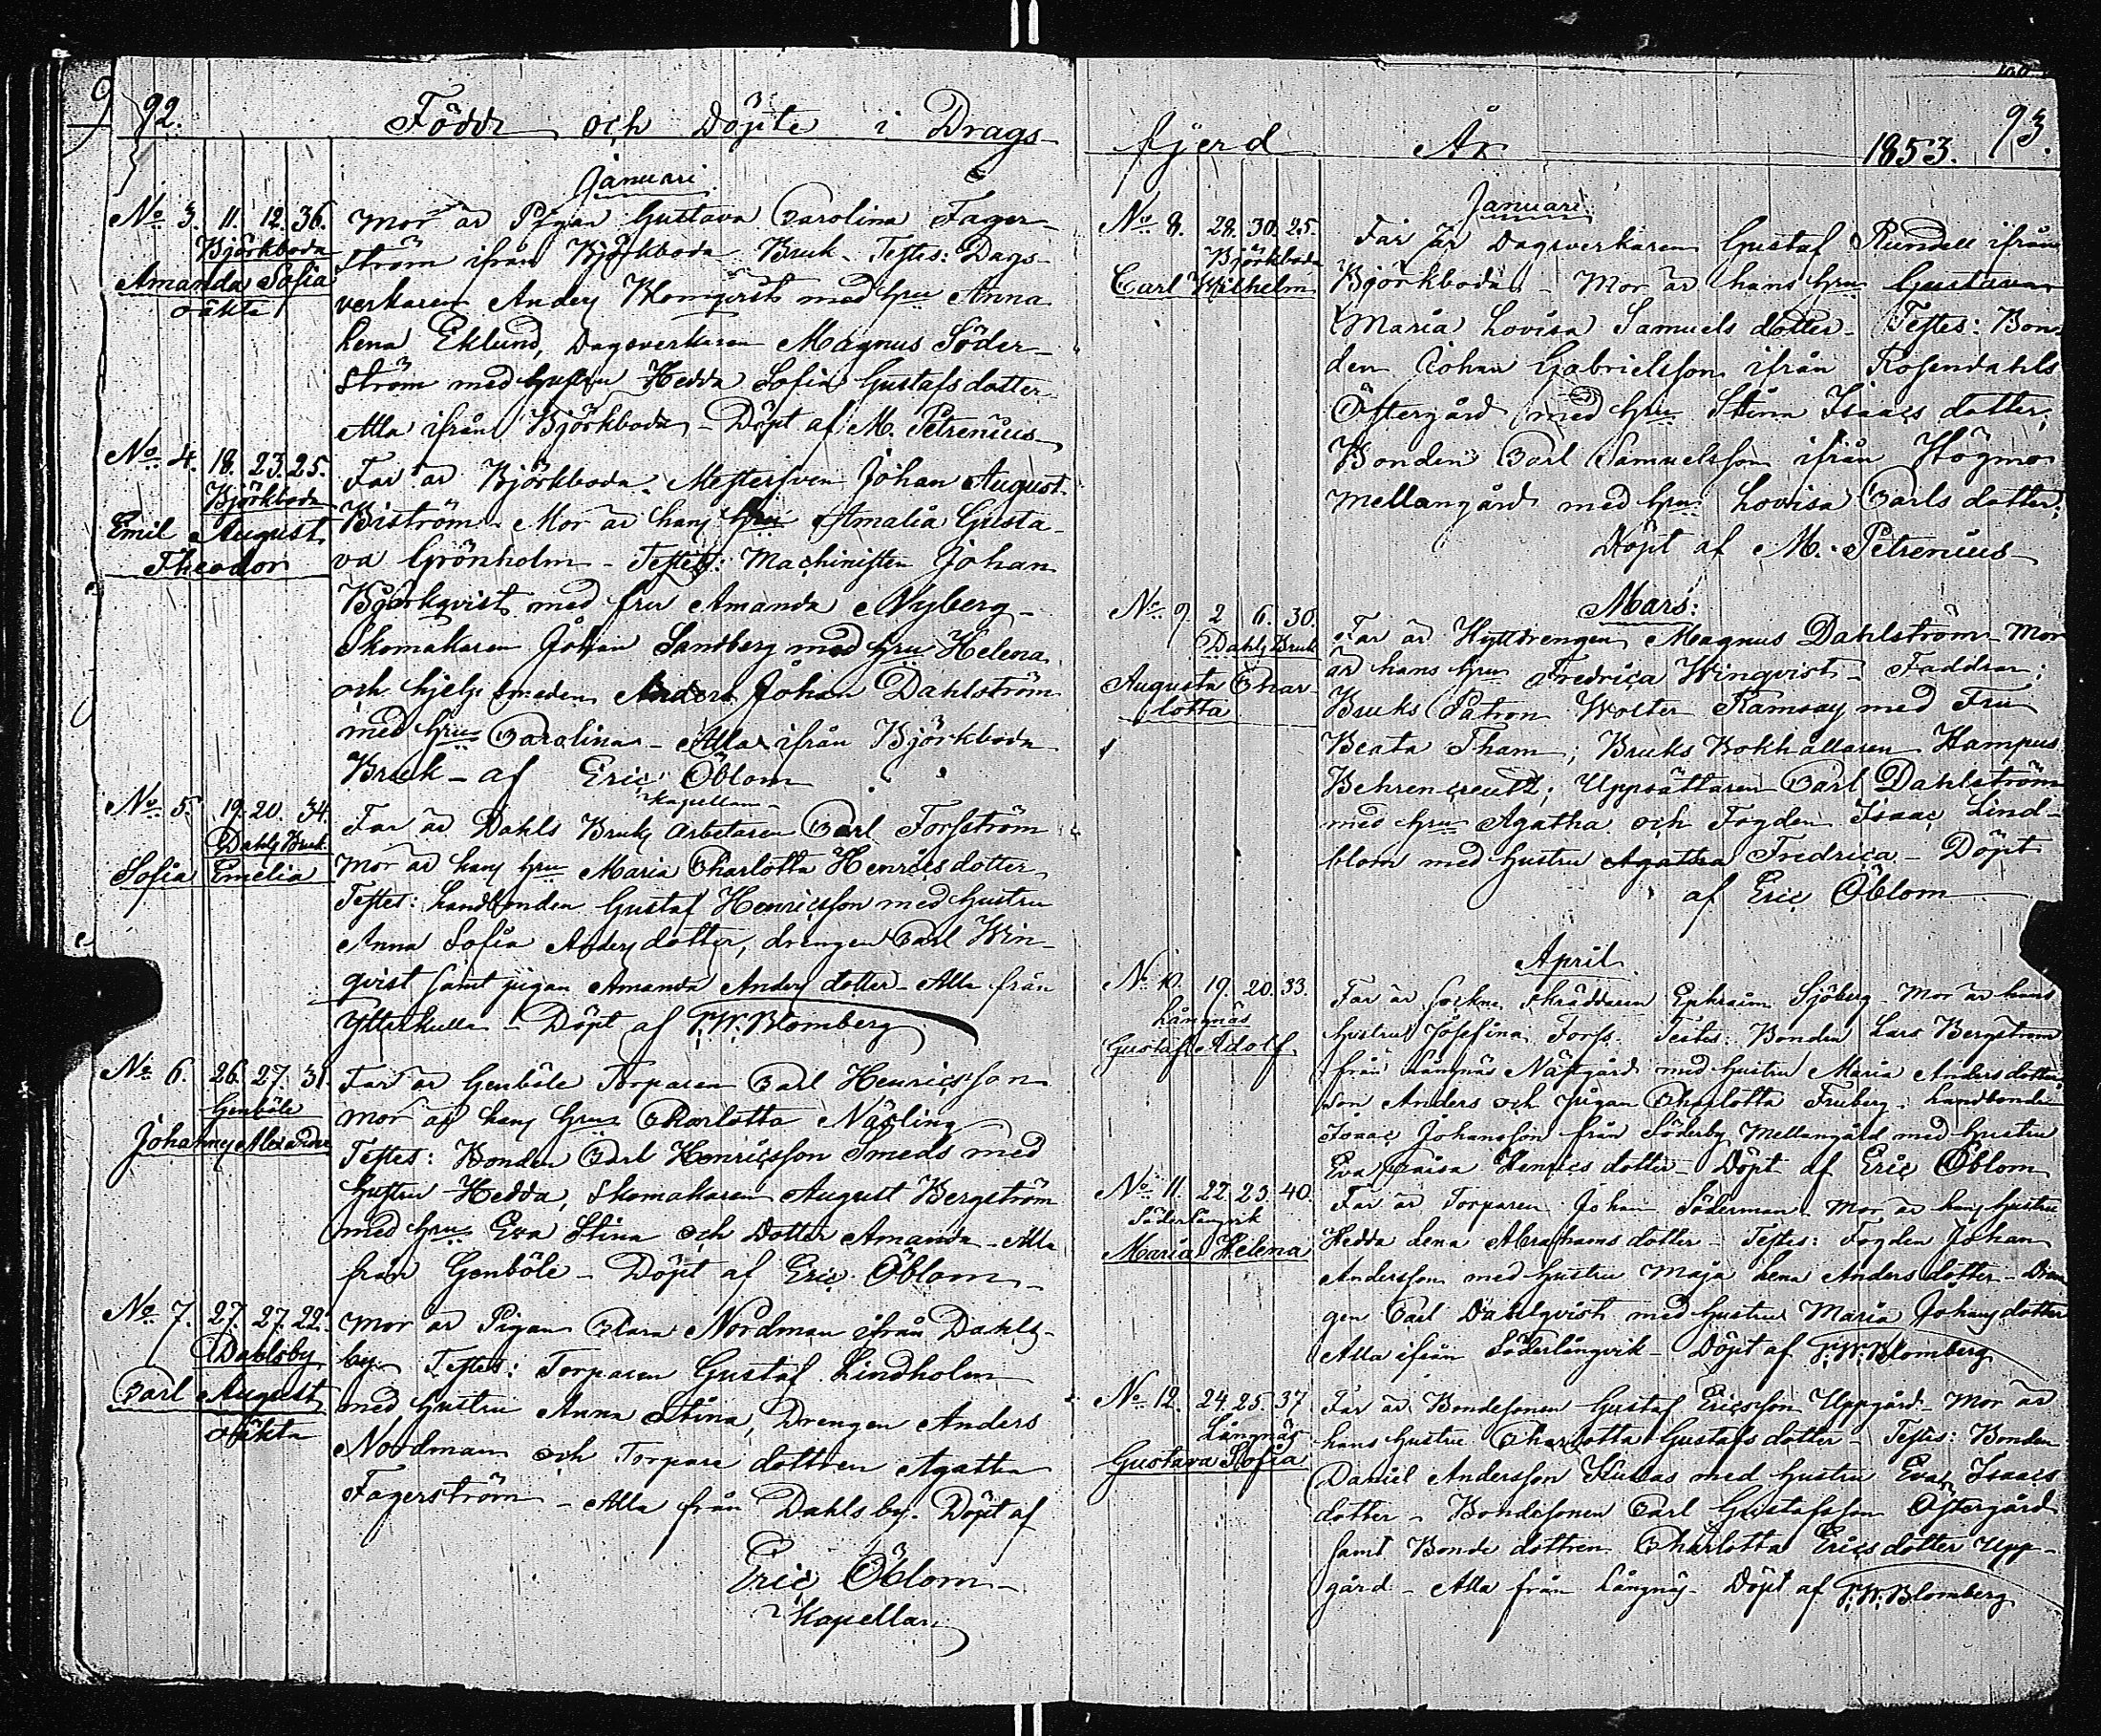 92.
Födde och Döpte i Drags-
Januari
No 3. 11. 12. 36.
Björkboda
Amanda Sofia
oäkta
Mor är Pigan Gustava Carolina Fager-
ström ifrån Björkboda Bruk. Testes: Dags-
verkaren Anders Blomqvist med hru Anna
Lena Eklund, Dagsverkaren Magnus Söder-
ström med hustru Hedda Sofia Gustafs dotter
Alla ifrån Björkboda - Döpt af M. Petrenius
No 4. 18. 23. 25.
Björkboda
Emil August
Theodor
Far är Björkboda Mestersven Johan August
Biström. Mor är hans hru Amalia Gusta-
va Grönholm - Testes: Machinisten Johan
Björkqvist med fru Amanda Nyberg -
Skomakaren Johan Sandberg med hru Helena
och hjelp smeden Anders Johan Dahlström
med hru Carolina - Alla ifrån Björkboda
Bruk - af Eric Öblom
Kapellan
No 5. 19. 20. 34.
Dahls Bruk
Sofia Emelia
Far är Dahls Bruks arbetaren Carl Forsström
Mor är hans hru Maria Charlotta Henrics dotter
Testes: Landbonden Gustaf Henricsson med hustru
Anna Sofia Anders dotter, drengen Carl Win-
qvist samt pigan Amanda Anders dotter - Alla från
Ytterkulla - Döpt af F. W. Blomberg
No 6. 26. 27. 31.
Genböle
Johannes Alexander
Far är Genböle Torparen Carl Henricsson
Mor är hans hru Charlotta Näsling
Testes: Bonden Carl Henricsson Smeds med
hustru Hedda, Skomakaren August Bergström
med hru Eva Stina och Dotter Amanda - Alla
från Genböle - Döpt af Eric Öblom -
No 7. 27. 27. 22.
Dahlsby
Carl August
oäkta
Mor är Pigan Clara Nordman ifrån Dahls-
by - Testes: Torparen Gustaf Lindholm
med hustru Anna Stina, Drengen Anders
Nordman och Torpare dottren Agatha
Fagerström - Alla från Dahlsby. Döpt af
Eric Öblom -
Kapellan
93.
fjerd År 1853.
Januari
No 8. 28. 30. 25.
Björkboda
Carl Wilhelm
Far är Dagsverkaren Gustaf Rundell ifrån
Björkboda - Mor är hans hru Gustava
Maria Lovisa Samuels dotter - Testes: Bon-
den Johan Gabrielsson ifrån Rosendahls
Östergård med hru Stina Isaacs dotter,
Bonden Carl Samuelsson ifrån Högmo
Mellangård med hru Lovisa Carls dotter,
Döpt af M. Petrenius
Mars:
No 9. 2 6. 30.
Dahls Bruk
Augusta Char-
lotta
Far är Hyttdrengen Magnus Dahlström - Mor
är hans hru Fredrica Winqvist - Faddrar:
Bruks Patron Wolter Ramsay med Fru
Beata Tham; Bruks Bokhållaren Hampus
Behrencreutz; Uppsättaren Carl Dahlström
med hru Agatha och Fogden Isaac Lind-
blom med hustru Agatha Fredrica - Döpt
af Eric Öblom
April
No 10. 19. 20. 33.
Långnäs
Gustaf Adolf
Far är sockne skräddaren Ephraim Sjöberg - Mor är hans
hustru Josefina Forss. Testes: Bonden Lars Bergström
från Långnäs Näsgård med hustru Maria Anders dotter,
son Anders och Pigan Charlotta Friberg; Landbonde
Isaac Johansson från Söderby Mellangård med hustru
Eva Caisa Henrics dotter - Döpt af Eric Öblom
No 11. 22. 23. 40.
Söderlångvik
Maria Helena
Far är Torparen Johan Söderman - Mor är hans hustru
Hedda Lena Abrahams dotter - Testes: Fogden Johan
Andersson med hustru Maja Lena Anders dotter - Dren
gen Carl Dahlqvist med hustru Maria Johans dotter
Alla ifrån Söderlångvik - Döpt af F. W. Blomberg
No 12. 24. 25. 37
Långnäs
Gustava Sofia
Far är Bondesonen Gustaf Ericsson Uppgård - Mor är
hans hustru Charlotta Gustafs dotter - Testes: Bonden
Daniel Andersson Kullas med hustru Eva Isaacs
dotter - Bondesonen Carl Gustafsson Östergård
samt Bonde dottren Charlotta Erics dotter Upp-
gård - Alla från Långnäs - Döpt af F. W. Blomberg